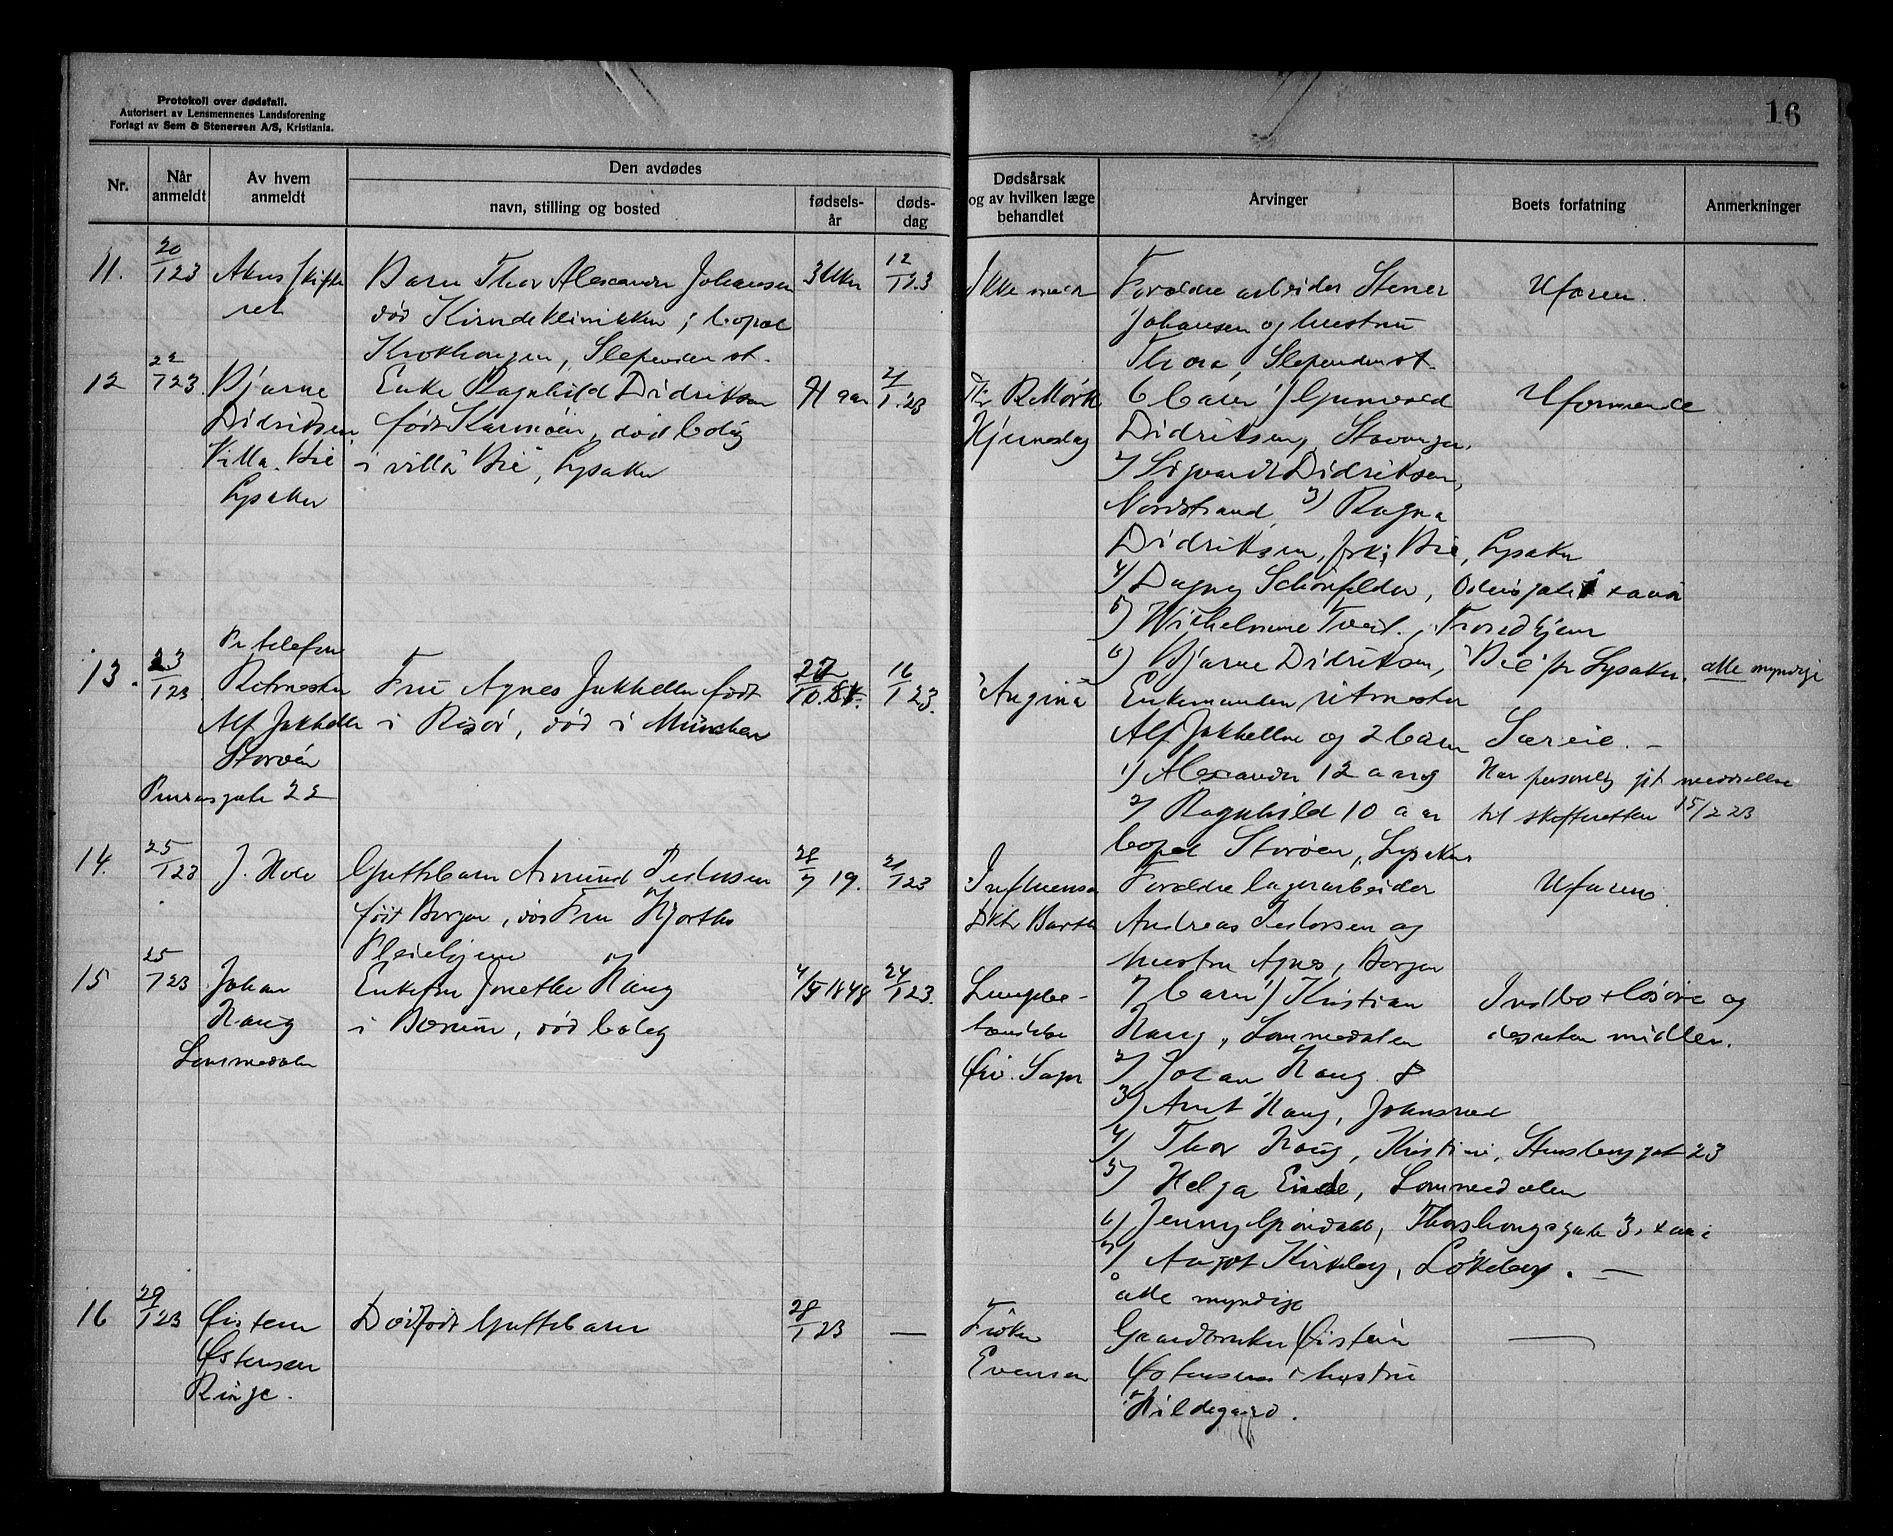 Protokoll over dødsfall.
Autorisert av Lensmennenes Landsforening
Forlagt av Sem & Stenersen A/S, Kristiania.
16
Nr.
Når anmeldt
Av hvem anmeldt
Den avdødes
navn, stilling og bosted
fødsels-år
døds-dag
Dødsårsak og av hvilken læge behandlet
Arvinger
Boets forfatning
Anmerkninger
11.
20/1 23
Akers skifte
ret
Barn Thor Alexander Johansen
død Kvindeklinikken, bopæl
Slependen st.
3 Uker
12/1 2.3
Ikke
Forældre arbeider Stener
Johansen og hustru
Thora, Slependen st.
Uformu.
12
22/1 23.
Bjarne
Didriksen
Villa Bie
Lysaker
Enke Ragnhild Didriksen
født Karmöen, død bolig
i villa "Bie", Lysaker
71 aar
21/1. 23
Dr R. Mørk
Hjerneslag
6 barn 1) Gunvald
Didriksen, Stavanger.
2) Sigvardt Didriksen,
Nordstrand 3) Ragna
Didriksen, frk; Bie, Lysaker
4) Dagny Schönfelder,
5) Wilhelmine Tveit., Trondhjem
6) Bjarne Didriksen, "Bie" pr Lysaker. alle myndige
Uformuende
13.
23/1 23
Pr telefon
Ritmester
Alf Jakhelln
Storøen
gate 22
Fru Agnes Jakhelln født
i Risør, død i München
27/10.84.
16/1 23.
"Angina"
Enkemanden ritmester
Alf Jakhelln og 2 barn
1) Alexander 12 aar og
2) Ragnhild 10 aar
bopæl Storøen, Lysaker
Særeie. –
Har personlig git meddelelse
til skifteretten 15/2 23
14.
25/1 23
J. Hole
Guttebarn Asmund Pedersen
født Borgen, død Fru Hjorths
Pleiehjem
28/7 19.
21/1 23
Influensa
Dktr Barth
Forældre lagerarbeider
Andreas Pedersen og
hustru Agnes, Borgen
Uformu.
15
25/1 23
Johan
Haug
Lommedalen
Enkefru Jonette Haug
i Bærum, død bolig
4/5 1848
24/1 23.
Lungebe-
tændelse
7 barn 1) Kristian
Haug, Lommedalen
2) Johan Haug
3) Anut Haug, Johnsrud
4) Thor Haug, Kristiania, Stensberggat 23
5) Helga Eide, Lommedalen
6) Jenny Gröndahl, Thorshaugsgate 3,
7) Aagot Kirkeby, Lökeberg. —
alle myndige
Indbo + løsøre og
desuten midler.
16
29/1 23
Øistein
Østensen
Ringe.
Dødfødt Guttebarn
28/1 23
—
Frøken
Evensen
Gaardbruker Øistein
Østensen + hustru
Hildegard.
—